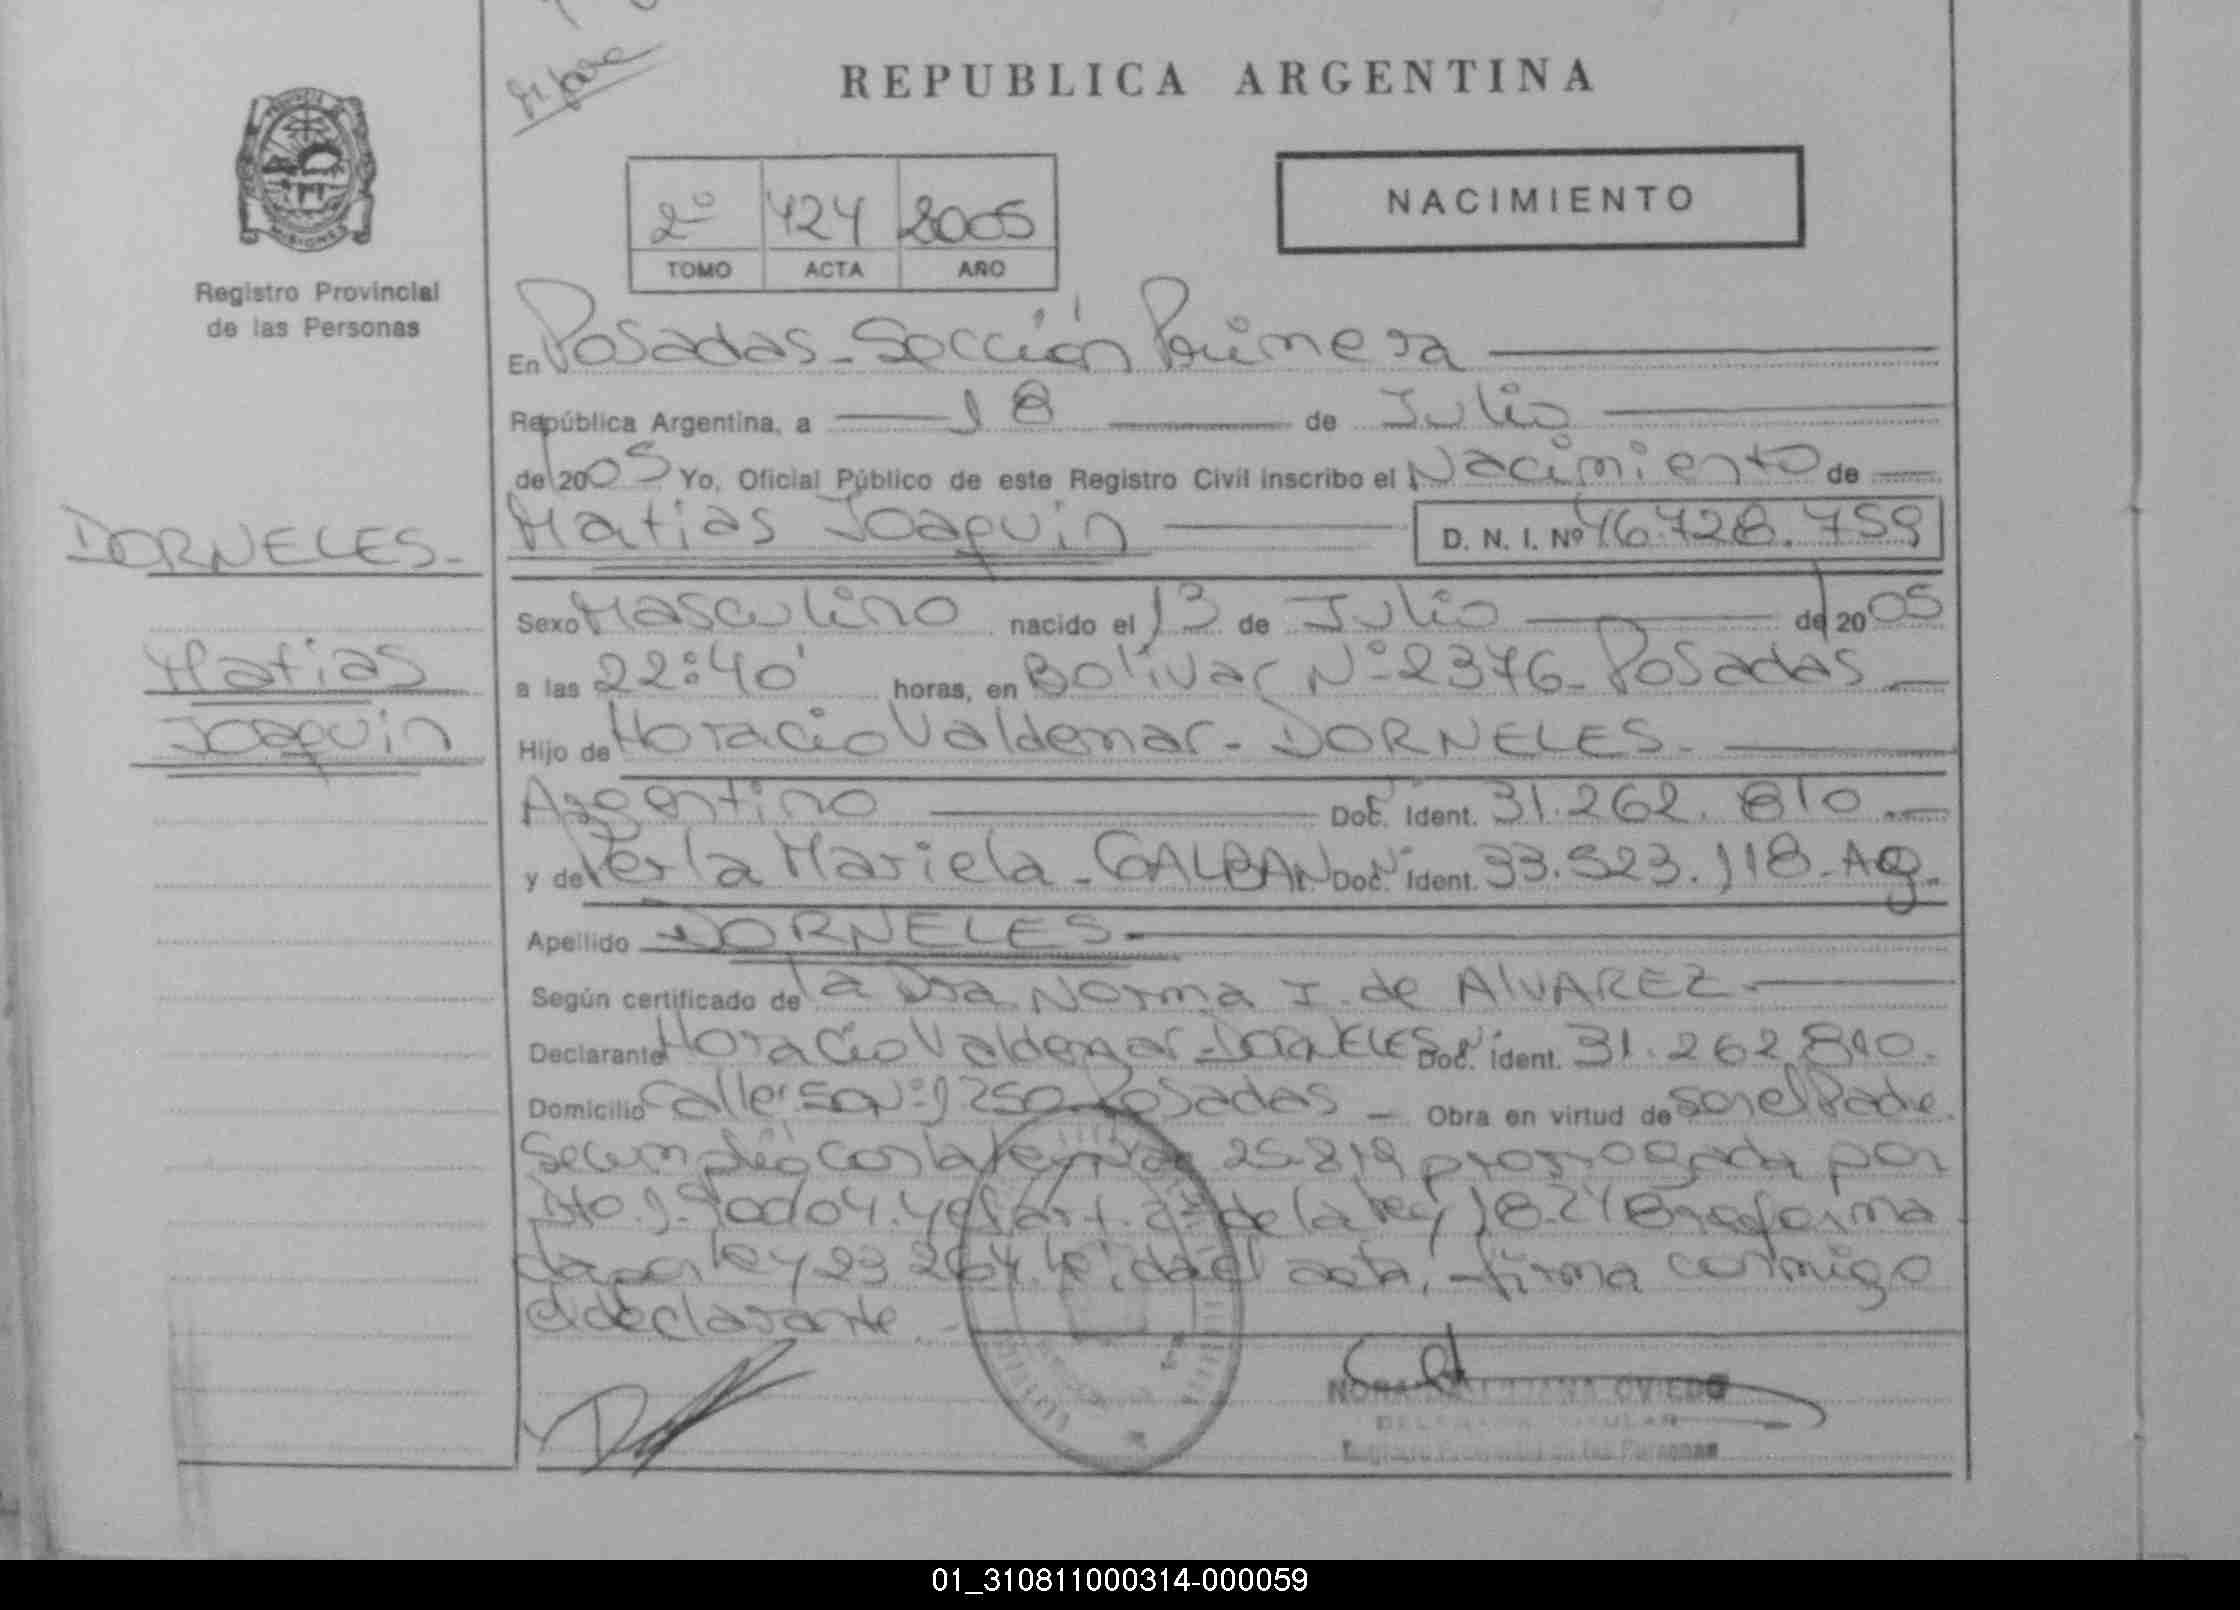 REPUBLICA ARGENTINA
MISIONES
Registro Provincial
de las Personas
2º 424 2005
TOMO ACTA AÑO
NACIMIENTO
En Posadas - Sección Primera
República Argentina, a 18 de Julio
de 2005 Yo, Oficial Público de este Registro Civil inscribo el Nacimiento de
Matias Joaquin D. N. I. Nº 46.428.759
DORNELES.-
Matias
Joaquin
Sexo Masculino nacido el 13 de Julio de 2005
a las 22:40' horas, en Bolivar Nº 2376 - Posadas
Hijo de Horacio Valdemar - DORNELES -
Argentino Doc. Ident. 31.262.810.-
y de Perla Mariela - GALBAN Doc. Ident. 33.523.118 - Ag.
Apellido DORNELES.-
Según certificado de la Dra Norma I. de ALVAREZ
Declarante Horacio Valdemar - DORNELES Doc. Ident. 31.262.810.
Domicilio Calle 50 Nº 1250 Posadas - Obra en virtud de ser el Padre.
Se cumplió con la ley Nº 25.819 prorrogada por
Dto. 04. y el art. 2º de la ley 18.248 reforma
da por ley 23.264. leída el acta, firma conmigo
el declarante.-
OVIEDO
DELEGADA TITULAR
Registro Provincial de las Personas
01_310811000314-000059